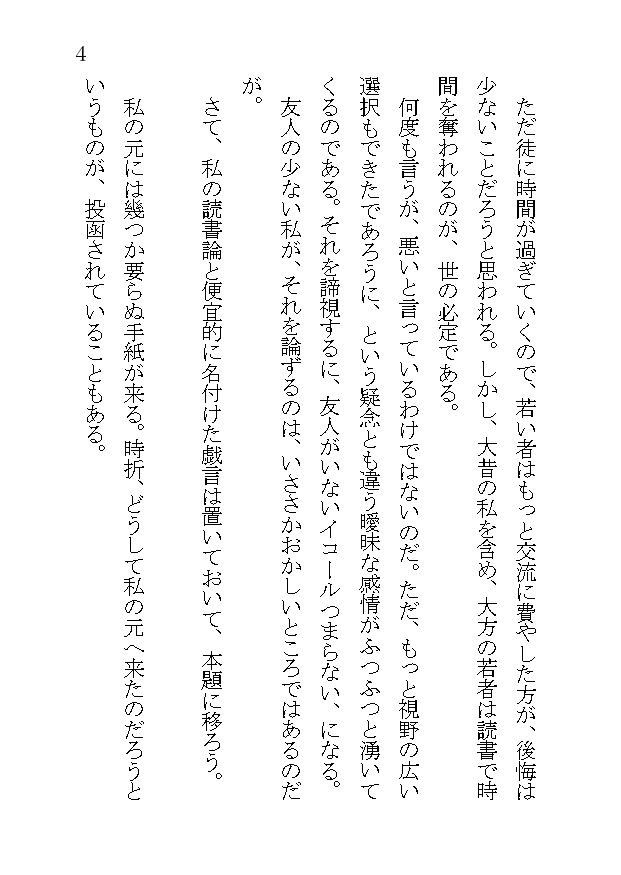 4
　ただ徒に時間が過ぎていくので、若い者はもっと交流に費やした方が、後悔は
少ないことだろうと思われる。しかし、大昔の私を含め、大方の若者は読書で時
間を奪われるのが、世の必定である。
　何度も言うが、悪いと言っているわけではないのだ。ただ、もっと視野の広い
選択もできたであろうに、という疑念とも違う曖昧な感情がふつふつと湧いて
くるのである。それを諦視するに、友人がいないイコールつまらない、になる。
　友人の少ない私が、それを論ずるのは、いささかおかしいところではあるのだ
が。
　さて、私の読書論と便宜的に名付けた戯言は置いておいて、本題に移ろう。
　私の元には幾つか要らぬ手紙が来る。時折、どうして私の元へ来たのだろうと
いうものが、投函されていることもある。